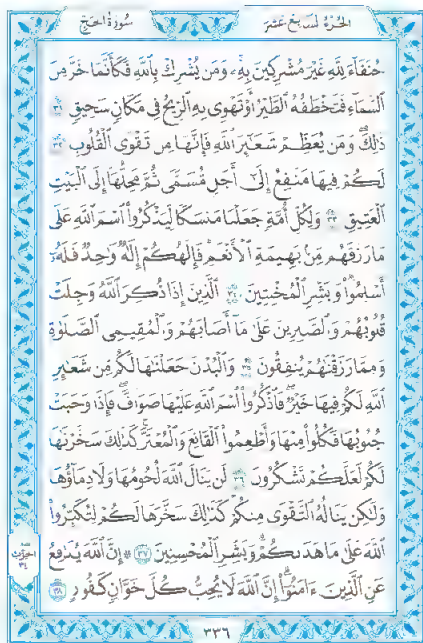 سُورَةُ الحَجّ الجُزْءُ السَّابِعَ عَشَرَ
حُنَفَآءَ لِلَّهِ غَيْرَ مُشْرِكِينَ بِهِۦۚ وَمَن يُشْرِكْ بِٱللَّهِ فَكَأَنَّمَا خَرَّ مِنَ
ٱلسَّمَآءِ فَتَخْطَفُهُ ٱلطَّيْرُ أَوْ تَهْوِى بِهِ ٱلرِّيحُ فِى مَكَانٍ سَحِيقٍ ٣١
ذَٰلِكَۖ وَمَن يُعَظِّمْ شَعَـٰٓئِرَ ٱللَّهِ فَإِنَّهَا مِن تَقْوَى ٱلْقُلُوبِ ٣٢
لَكُمْ فِيهَا مَنَـٰفِعُ إِلَىٰٓ أَجَلٍ مُّسَمًّى ثُمَّ مَحِلُّهَآ إِلَى ٱلْبَيْتِ
ٱلْعَتِيقِ ٣٣ وَلِكُلِّ أُمَّةٍ جَعَلْنَا مَنسَكًا لِّيَذْكُرُوا۟ ٱسْمَ ٱللَّهِ عَلَىٰ
مَا رَزَقَهُم مِّنۢ بَهِيمَةِ ٱلْأَنْعَـٰمِۗ فَإِلَـٰهُكُمْ إِلَـٰهٌ وَٰحِدٌ فَلَهُۥٓ
أَسْلِمُوا۟ۗ وَبَشِّرِ ٱلْمُخْبِتِينَ ٣٤ ٱلَّذِينَ إِذَا ذُكِرَ ٱللَّهُ وَجِلَتْ
قُلُوبُهُمْ وَٱلصَّـٰبِرِينَ عَلَىٰ مَآ أَصَابَهُمْ وَٱلْمُقِيمِى ٱلصَّلَوٰةِ
وَمِمَّا رَزَقْنَـٰهُمْ يُنفِقُونَ ٣٥ وَٱلْبُدْنَ جَعَلْنَـٰهَا لَكُم مِّن شَعَـٰٓئِرِ
ٱللَّهِ لَكُمْ فِيهَا خَيْرٌۖ فَٱذْكُرُوا۟ ٱسْمَ ٱللَّهِ عَلَيْهَا صَوَآفَّۖ فَإِذَا وَجَبَتْ
جُنُوبُهَا فَكُلُوا۟ مِنْهَا وَأَطْعِمُوا۟ ٱلْقَانِعَ وَٱلْمُعْتَرَّۚ كَذَٰلِكَ سَخَّرْنَـٰهَا
لَكُمْ لَعَلَّكُمْ تَشْكُرُونَ ٣٦ لَن يَنَالَ ٱللَّهَ لُحُومُهَا وَلَا دِمَآؤُهَا
وَلَـٰكِن يَنَالُهُ ٱلتَّقْوَىٰ مِنكُمْۚ كَذَٰلِكَ سَخَّرَهَا لَكُمْ لِتُكَبِّرُوا۟
ٱللَّهَ عَلَىٰ مَا هَدَىٰكُمْۗ وَبَشِّرِ ٱلْمُحْسِنِينَ ٣٧ ۞ إِنَّ ٱللَّهَ يُدَٰفِعُ
عَنِ ٱلَّذِينَ ءَامَنُوٓا۟ۗ إِنَّ ٱللَّهَ لَا يُحِبُّ كُلَّ خَوَّانٍ كَفُورٍ ٣٨
الحِزْب
٣٤
٣٣٦